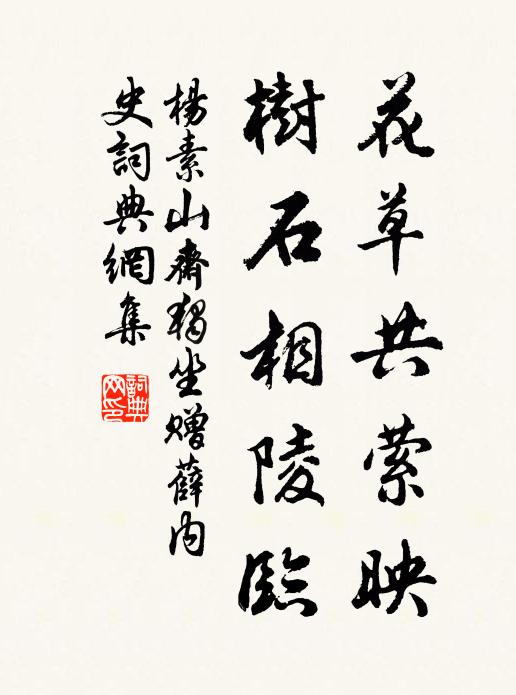 花草共萦映
樹石相陵臨
楊素山齋獨坐赠薛內
史詞典網集
詞典
网印